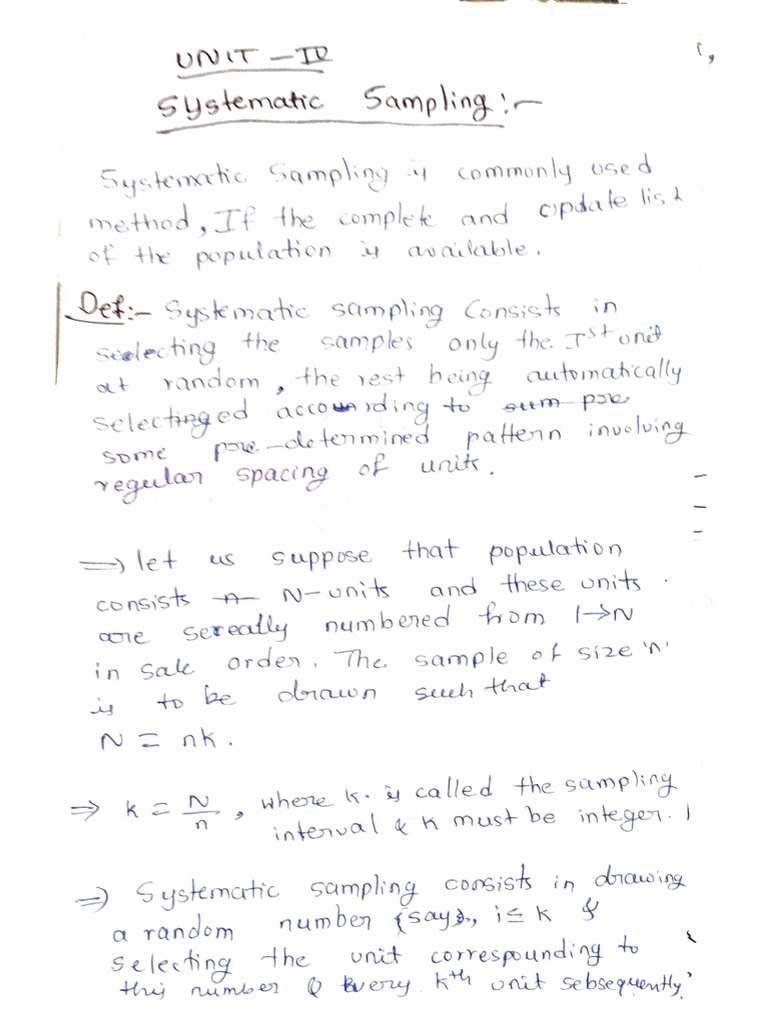 UNIT - IV
Systematic Sampling :-
Systematic Sampling is commonly used
method, If the complete and update list
of the population is available.
Def:- Systematic sampling Consists in
selecting the samples only the Ist unit
at random, the rest being automatically
selectinged according to
some pre-determined pattern involving
regular spacing of units.
=> let us suppose that population
consists N-units and these units
are sereally numbered from 1→N
in order. The sample of size 'n'
is to be drawn such that
N = nk.
=> k = N/n, where k is called the sampling
interval & k must be integer.
=> Systematic sampling consists in drawing
a random number (say), i ≤ k &
selecting the unit correspounding to
this number & every kth unit sebsequently'